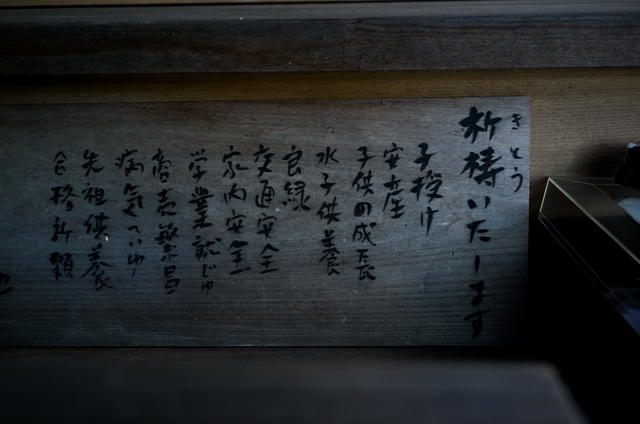 きとう
祈祷いたします
子授け
安産
子供の成長
水子供養
良縁
交通安全
家内安全
学業就じゅ
商売繁昌
病気へいゆ
先祖供養
合格祈願